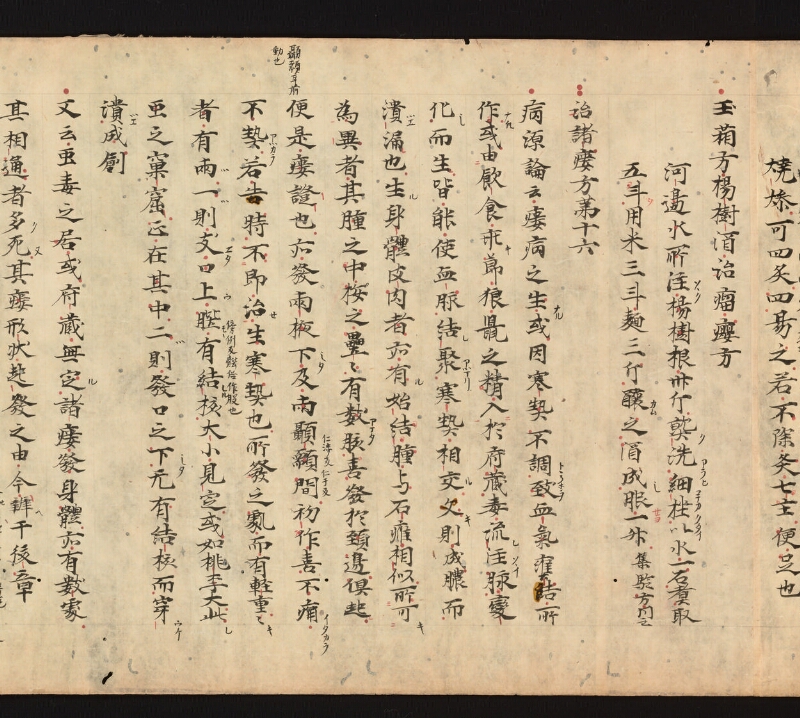 燒㷮可四炙四易之若不除灸七壮便之也
玉葙方楊樹酒治瘤癭方
河邊水所注楊樹根卅斤熟洗細剉以水一石煮取
五斗用米三斗麹三斤釀之酒成服一升 集驗方同之
治諸瘻方第十六
病源論云瘻病之生或因寒熱不調致血氣壅結所
作或由飲食乖節狼鼠之精入於府藏毒流注脉變
化而生皆能使血脉結聚寒熱相交久則成膿而
潰漏也生身體皮肉者亦有始結腫与石癰相似所可
為異者其腫之中按之壘々有數脉喜發於頸邊俱起
便是瘻證也亦發兩掖下及兩顳顬間初作喜不痛
不熱若告時不即治生寒熱也所發之處而有輕重々
者有兩一則支口上腭有結核大小無定或如桃李大此
虫之窠窟正在其中二則發口之下无有結核而穿
潰成創
又云虫毒之居或府藏無定諸瘻發身體亦有數處
其相通者多死其瘻形状起發之由今辨于後章